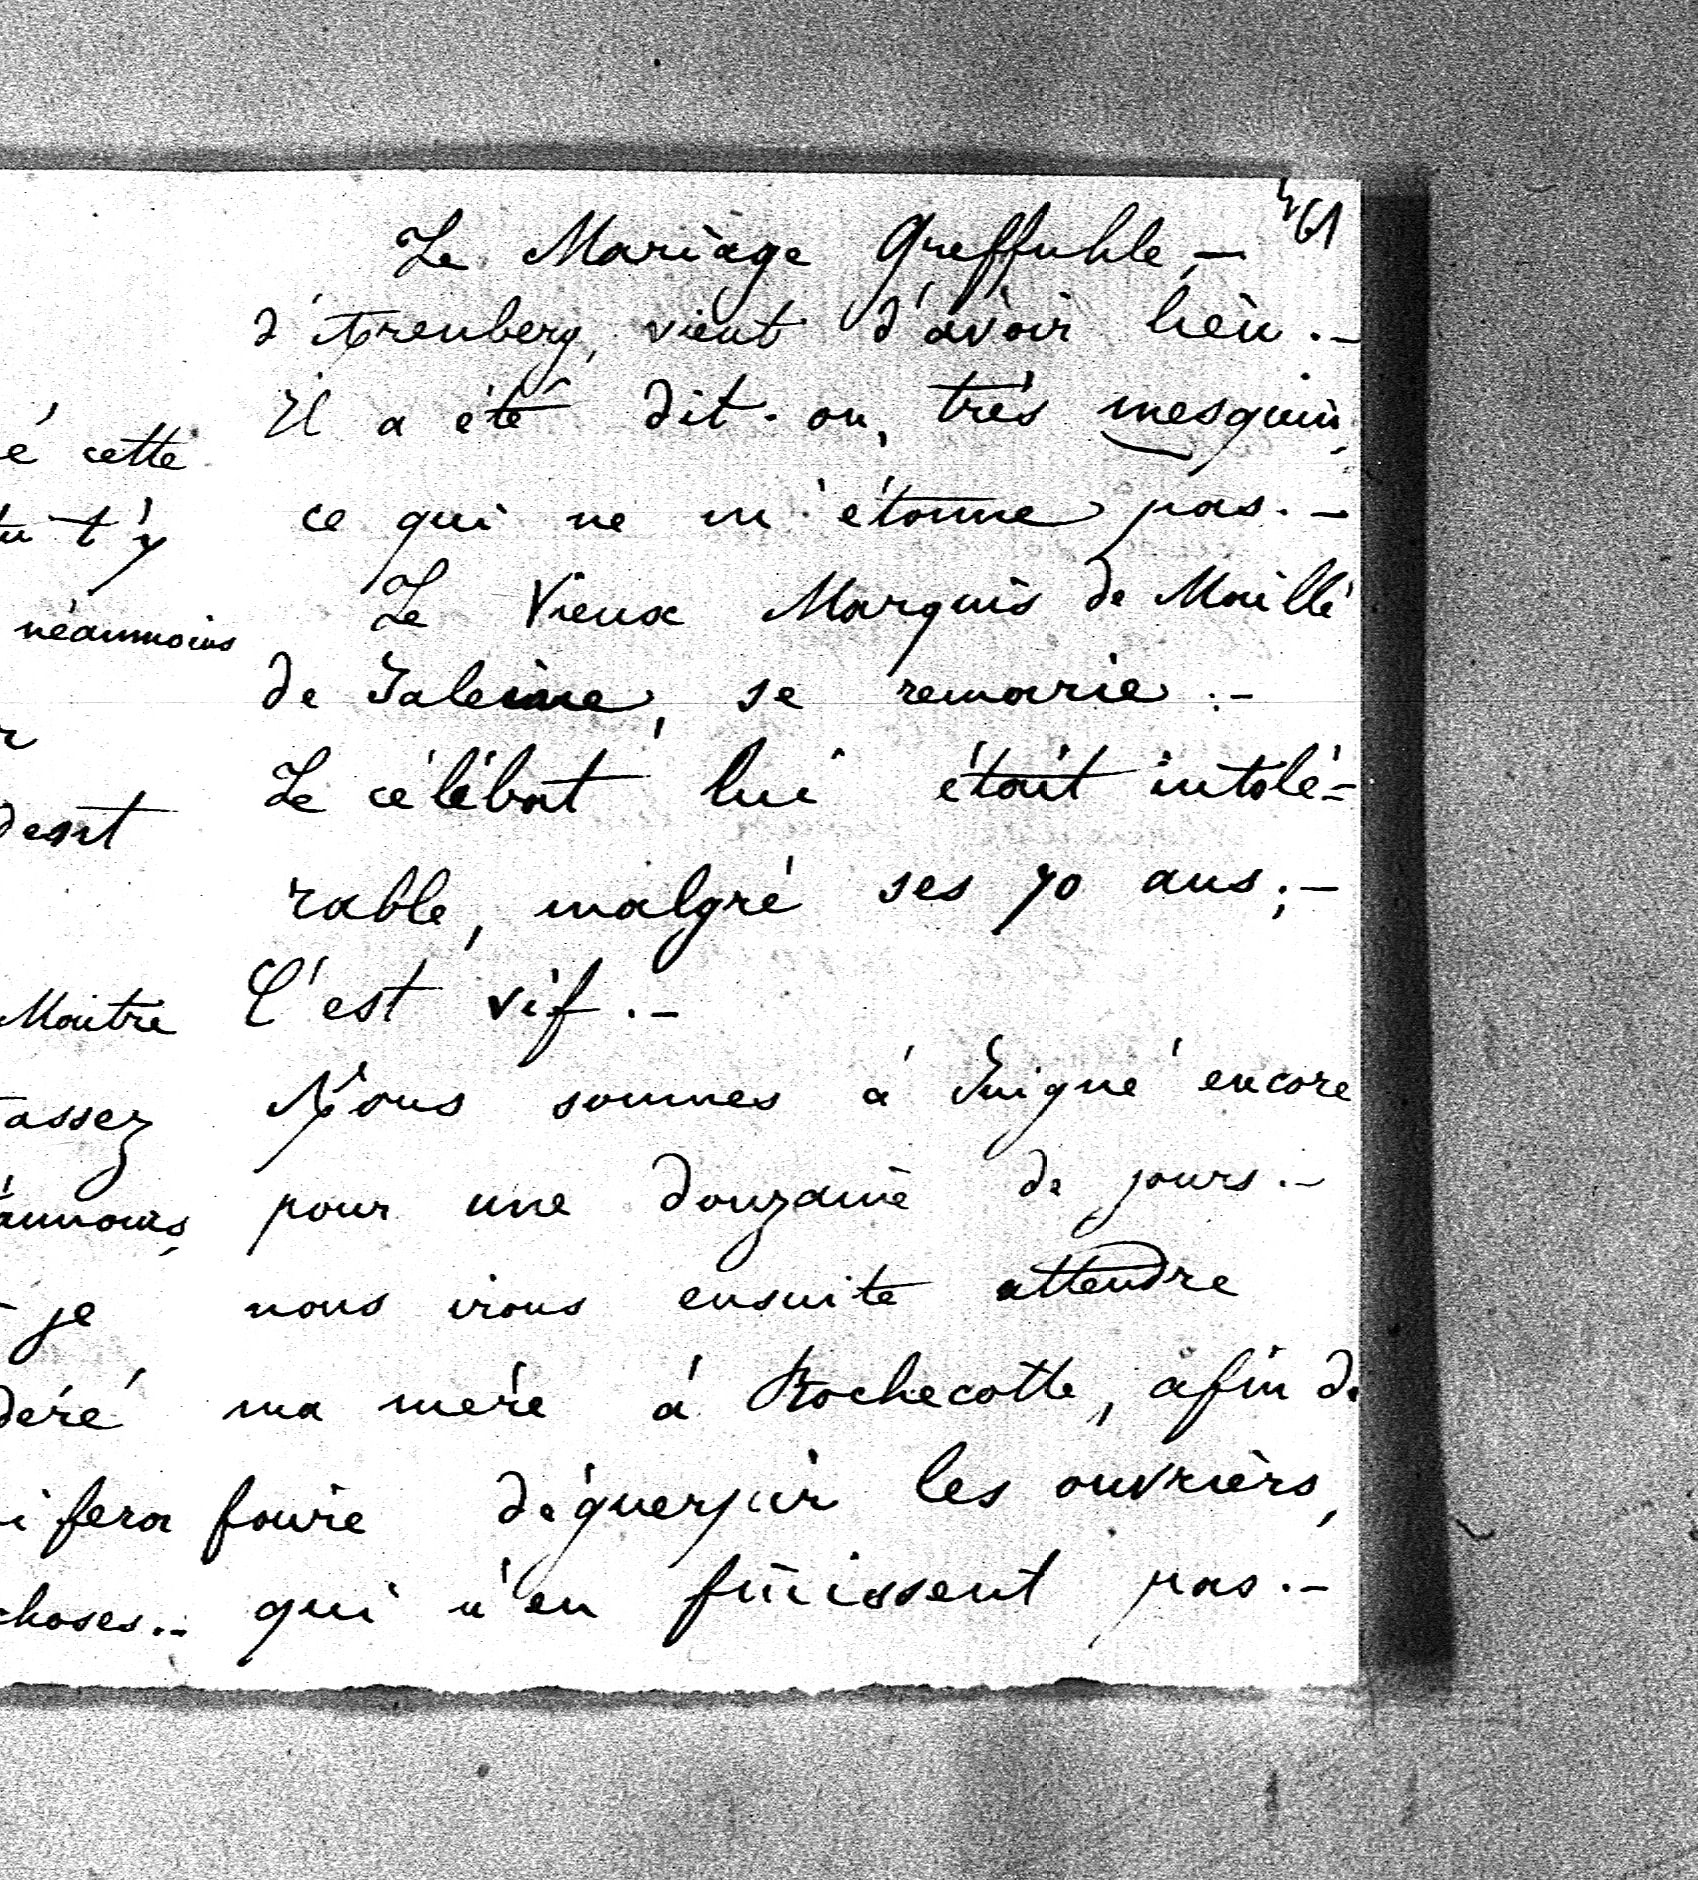 é cette
tu t'y
néanmoins
r
dent
Maitre
assez
anmoins,
- je
déré
i fera
choses..
61
Le Mariage Greffuhle,-
d'Arenberg, vient d'avoir lieu.-
Il a été dit-on, très mesquin,
ce qui ne m'étonne pas.-
Le Vieux Marquis de Maillé
de Jalesne, se remarie.-
Le célébat lui était intolé=
rable, malgré ses 70 ans;-
C'est vif.-
Nous sommes à Juigné encore
pour une douzaine de jours.-
nous irons ensuite attendre
ma mère à Rochecotte, afin de
faire déguerpir les ouvriers,
qui n'en finissent pas.-